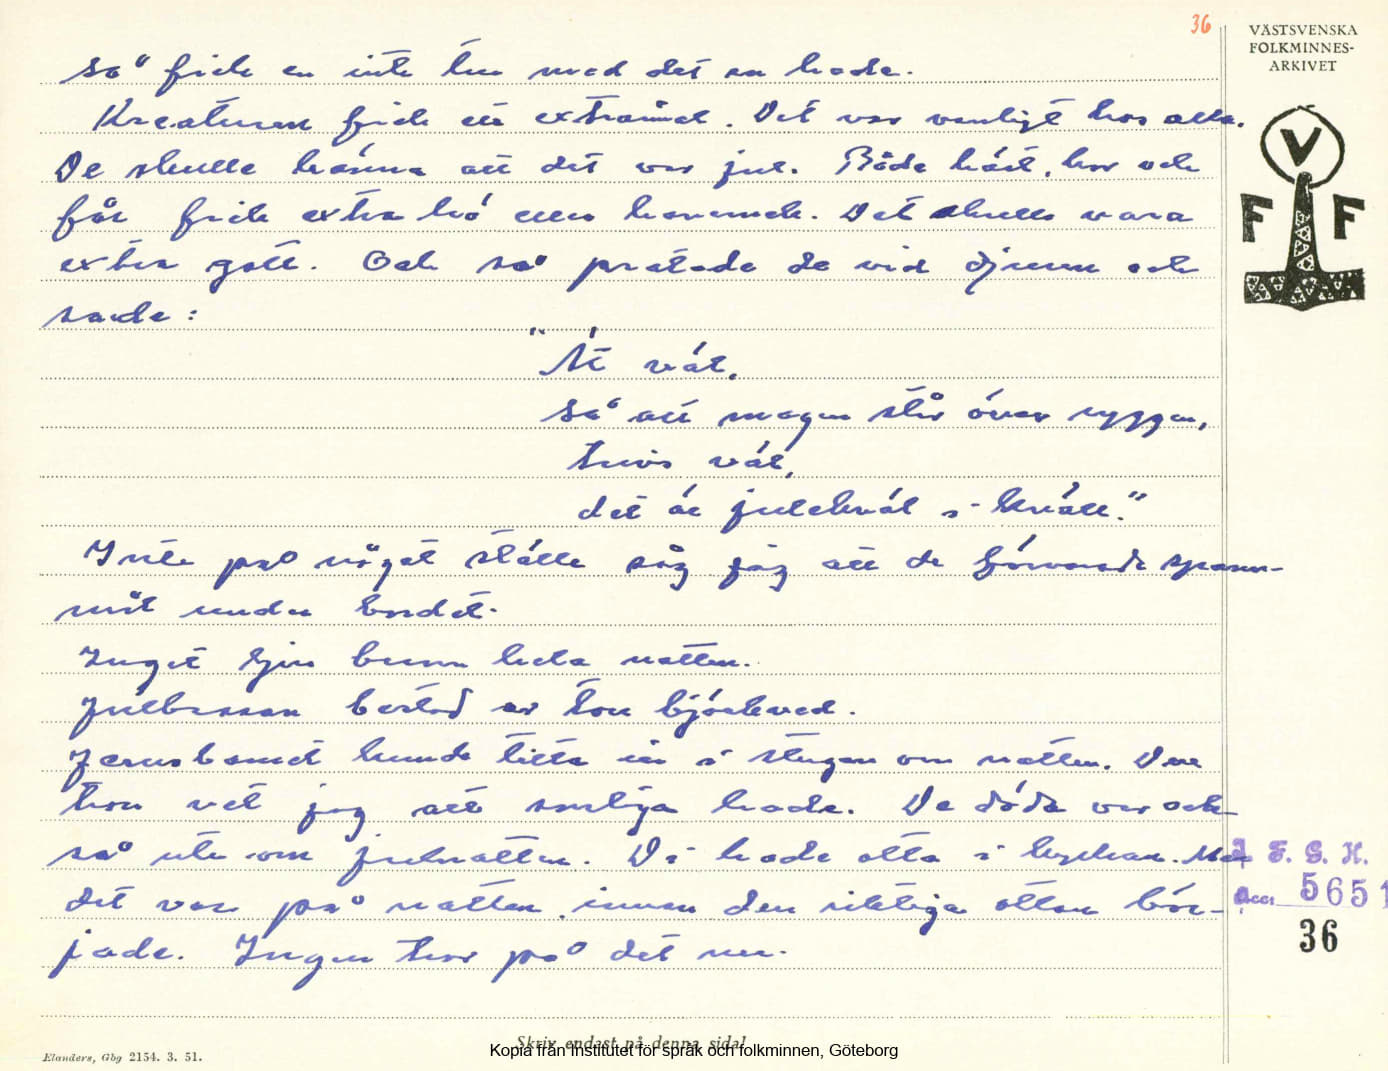 36
VÄSTSVENSKA
FOLKMINNES-
ARKIVET
så fick en inte tur med det en hade.
Kreaturen fick ett extramål. Det var vanligt hos alla.
De skulle känna att det var jul. Både häst, kor och
får fick extra hö eller havemck. Det skulle vara
extra gott. Och så pratade de vid djuren och
sade:
"Ät väl,
så att magen står över ryggen,
trivs väl,
det är julekväl i kväll."
Inte på något ställe såg jag att de förvarade spann-
mål under bordet.
Inget ljus brann hela natten.
Julbrasan bestod av torr björkved.
Jesusbarnet kunde titta in i stugan om natten. Den
tron vet jag att somliga hade. De döda var ock-
så ute om julnatten. Di hade otta i kyrkan. Men
det var på natten, innan den riktiga ottan bör-
jade. Ingen tror på det nu.
V
F F
I. F. G. H.
Acc. 5651
36
Skriv endast på denna sida!
Kopia från Institutet för språk och folkminnen, Göteborg
Elanders, Gbg 2154. 3. 51.